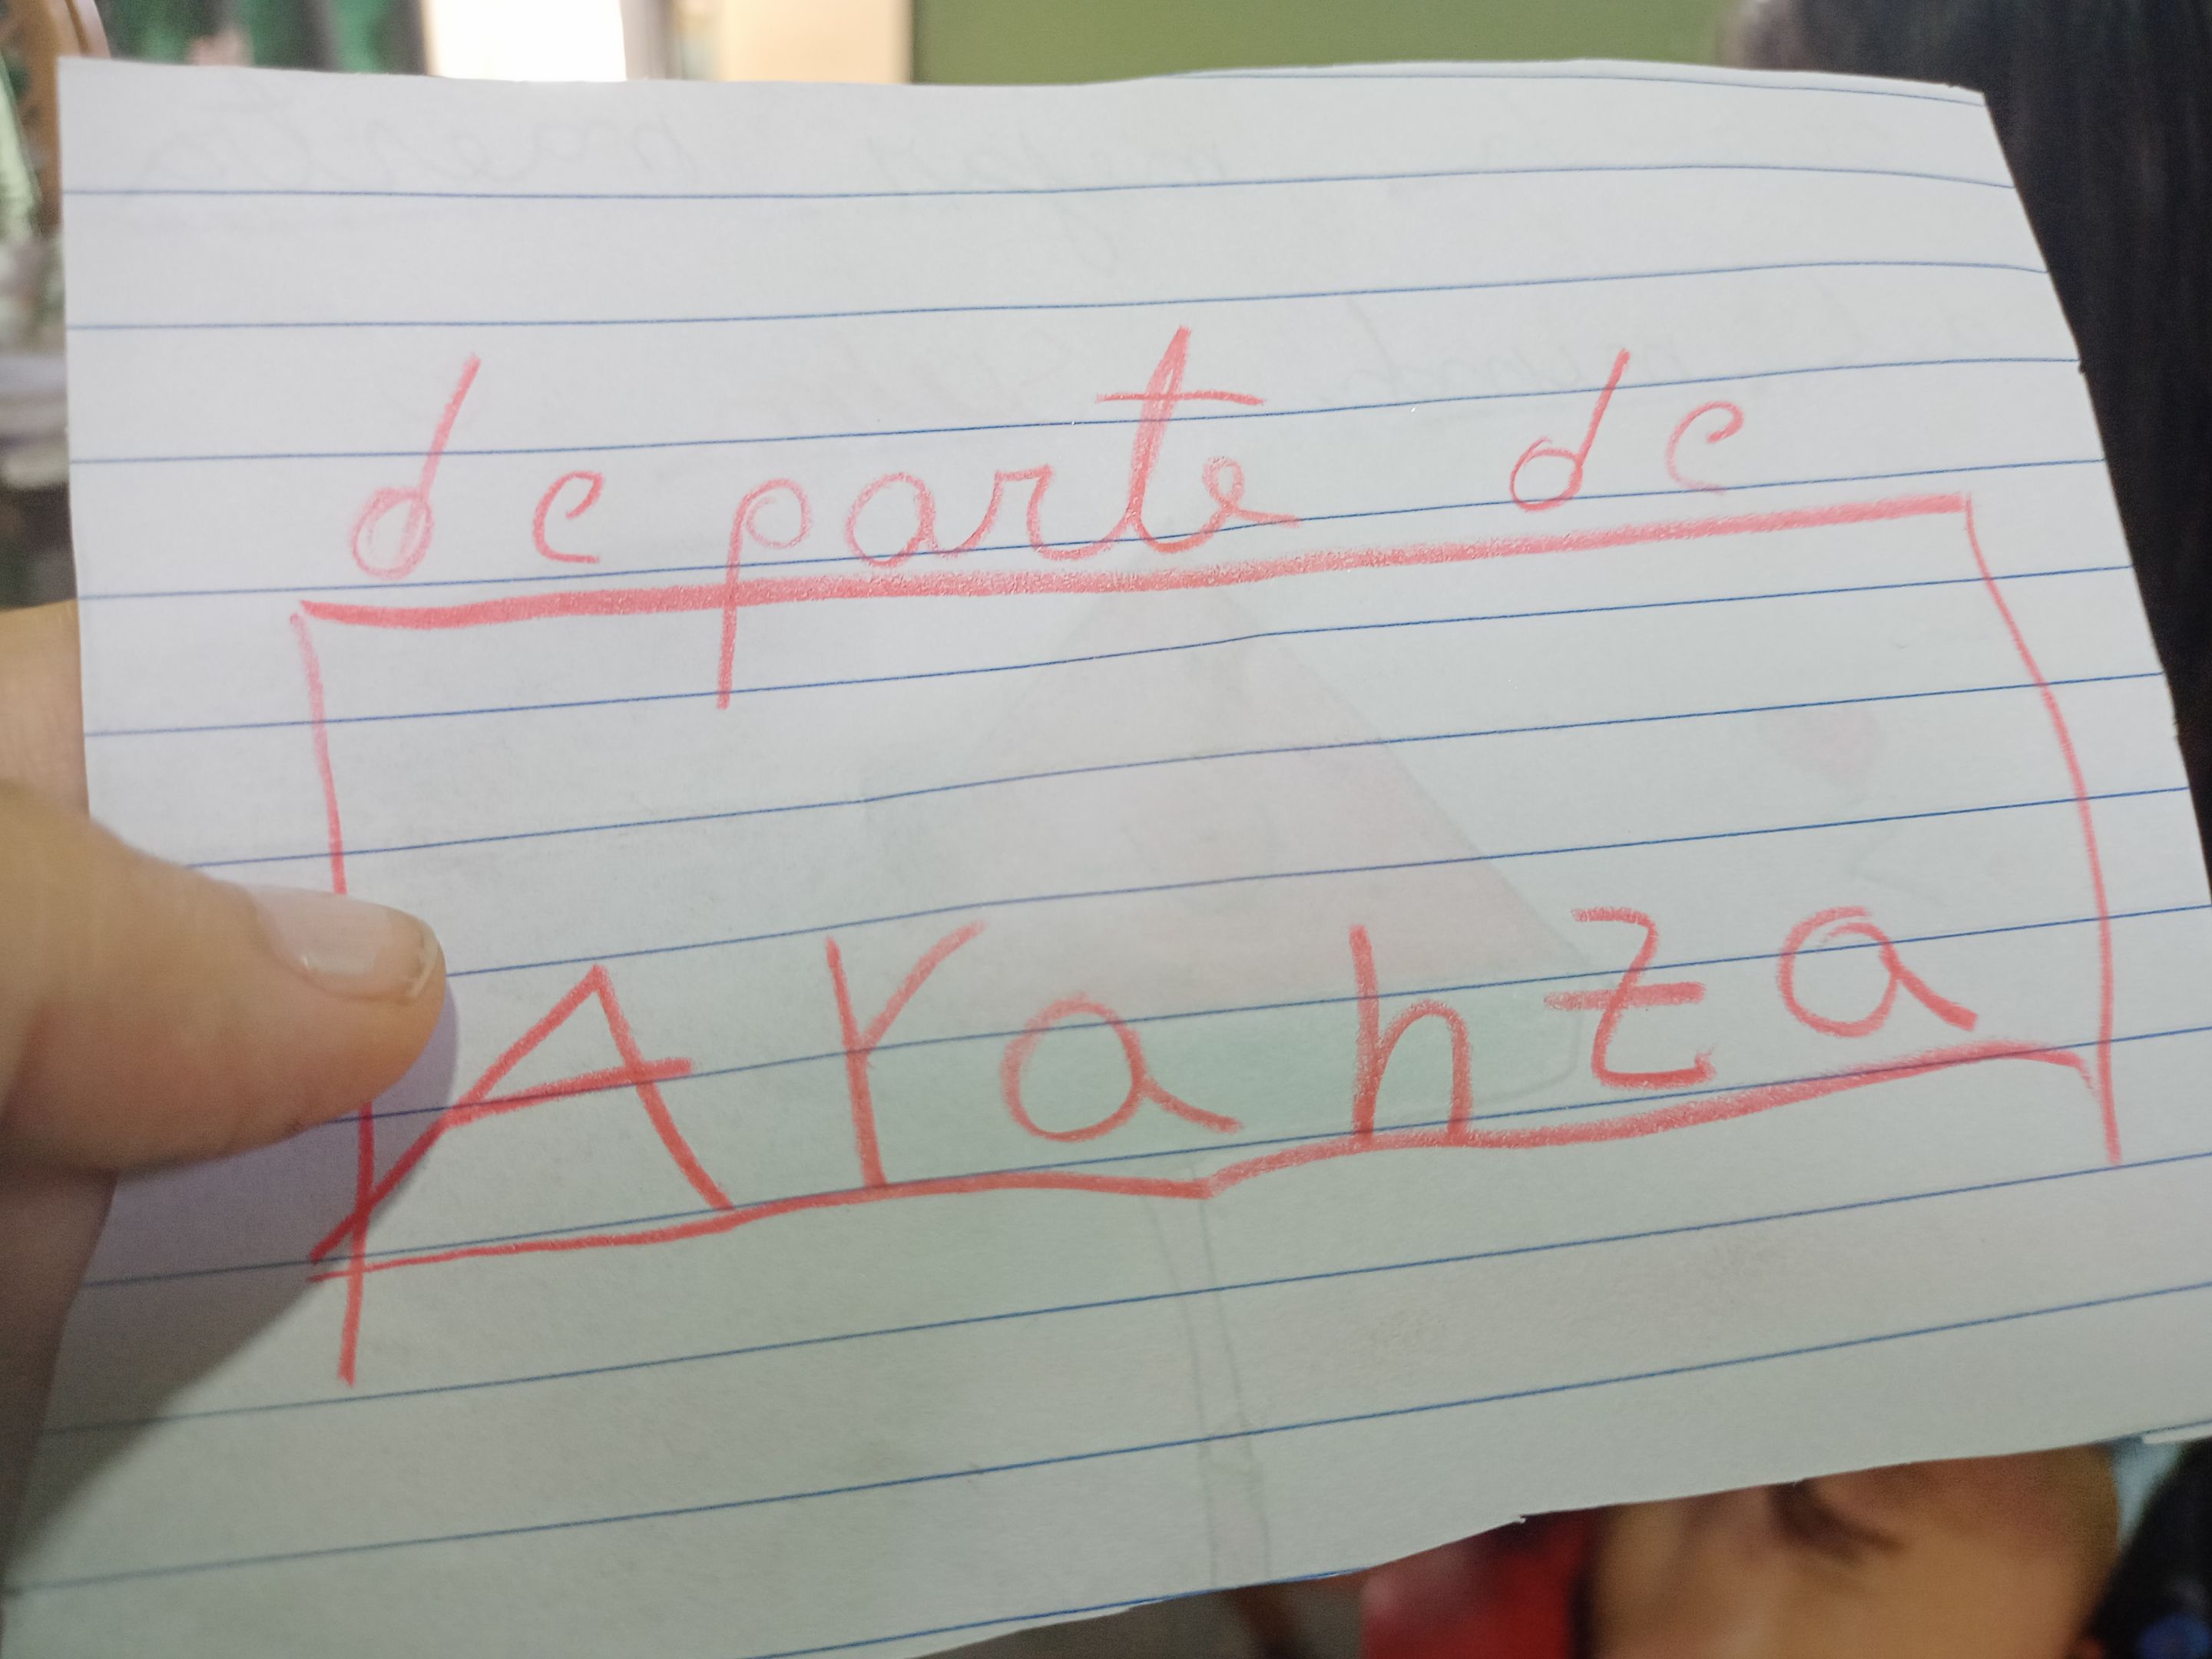 de parte de
Aranza